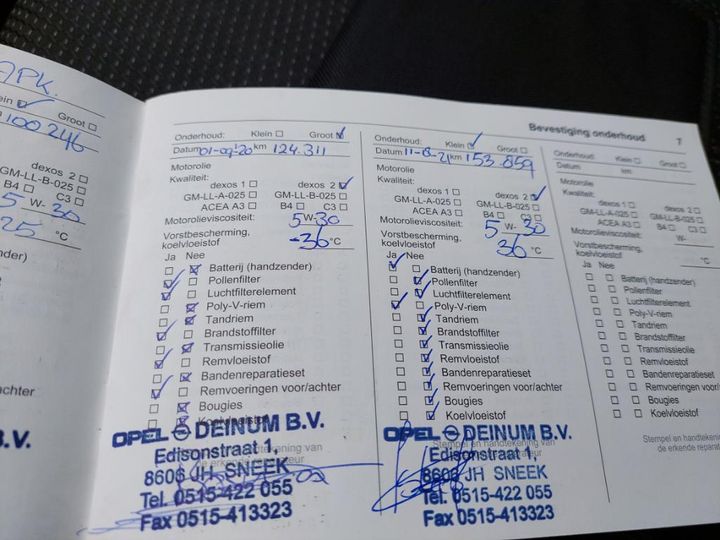 APK.
ein ☑ Groot ☐
100246
dexos 2 ☐
GM-LL-B-025 ☐
B4 ☐ C3 ☐
5 W-30
25 °C
nder)
achter
B.V.
Bevestiging onderhoud 7
Onderhoud: Klein ☐ Groot ☑
Datum 01-09-'20 km 124.311
Motorolie
Kwaliteit:
dexos 1 ☐ dexos 2 ☑
GM-LL-A-025 ☐ GM-LL-B-025 ☐
ACEA A3 ☐ B4 ☐ C3 ☐
Motorolieviscositeit: 5 W-30
Vorstbescherming,
koelvloeistof -36 °C
Ja Nee
Batterij (handzender)
Pollenfilter
Luchtfilterelement
Poly-V-riem
Tandriem
Brandstoffilter
Transmissieolie
Remvloeistof
Bandenreparatieset
Remvoeringen voor/achter
Bougies
Koelvloeistof
OPEL DEINUM B.V.
Edisonstraat 1,
8606 JH SNEEK
Tel. 0515-422 055
Fax 0515-413323
Onderhoud: Klein ☑ Groot ☐
Datum km 153.859
Motorolie
Kwaliteit:
dexos 1 ☐ dexos 2 ☑
GM-LL-A-025 ☐ GM-LL-B-025 ☐
ACEA A3 ☐ B4 ☐ C3 ☐
Motorolieviscositeit: 5 W-30
Vorstbescherming,
koelvloeistof 36 °C
Ja Nee
Batterij (handzender)
Pollenfilter
Luchtfilterelement
Poly-V-riem
Tandriem
Brandstoffilter
Transmissieolie
Remvloeistof
Bandenreparatieset
Remvoeringen voor/achter
Bougies
Koelvloeistof
Stempel en handtekening van
OPEL DEINUM B.V.
Edisonstraat 1,
8606 JH SNEEK
Tel. 0515-422 055
Fax 0515-413323
Onderhoud: Klein ☐ Groot ☐
Datum km
Motorolie
Kwaliteit:
dexos 1 ☐ dexos 2 ☐
GM-LL-A-025 ☐ GM-LL-B-025 ☐
ACEA A3 ☐ B4 ☐ C3 ☐
Motorolieviscositeit: W-
Vorstbescherming,
koelvloeistof °C
Ja Nee
Batterij (handzender)
Pollenfilter
Luchtfilterelement
Poly-V-riem
Tandriem
Brandstoffilter
Transmissieolie
Remvloeistof
Bandenreparatieset
Remvoeringen voor/achter
Bougies
Koelvloeistof
Stempel en handtekening
de erkende repara